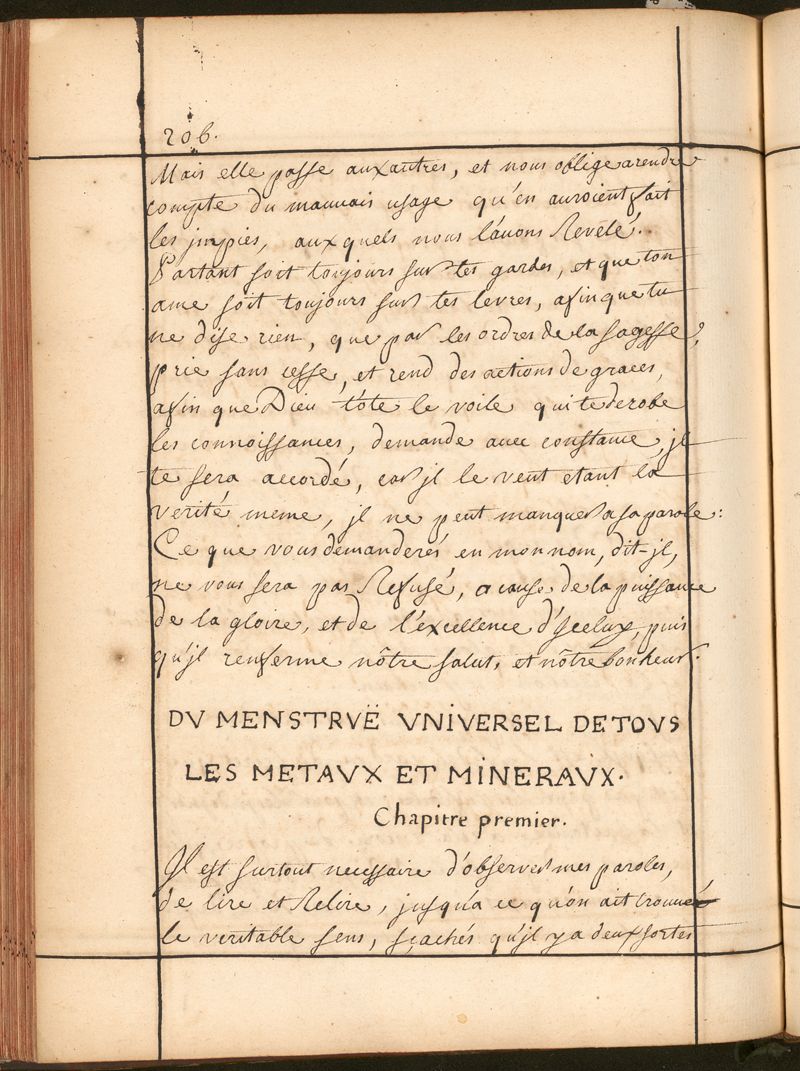 206.
Mais elle passe aux autres, et nous oblige a rendre
compte du mauvais usage qu'en auroient fait
les jmpies, aux quels nous l'auons Revelé.
Partant soit toujours sur tes gardes, et que ton
ame soit toujours sur tes levres, afin que tu
ne dise rien, que par les ordres de la sagesse,
prie sans cesse, et rend des actions de graces,
afin que Dieu t'ôte le voile qui te derobe
les connoissances, demande auec constance, jl
te sera accordé, car jl le veut etant la
verité meme, jl ne peut manquer a sa parole:
Ce que vous demanderés en mon nom, dit-jl,
ne vous sera pas Refusé, a cause de la puissance
de la gloire, et de l'excellence d'jceluy, puis
qu'jl renferme nôtre salut, et nôtre bonheur.
DV MENSTRVË VNIVERSEL DE TOVS
LES METAVX ET MINERAVX.
Chapitre premier.
Jl est surtout necessaire d'observer mes paroles,
de lire et Relire, jusqu'a ce qu'on ait trouué
le veritable sens, sçachés qu'jl y a deux sortes